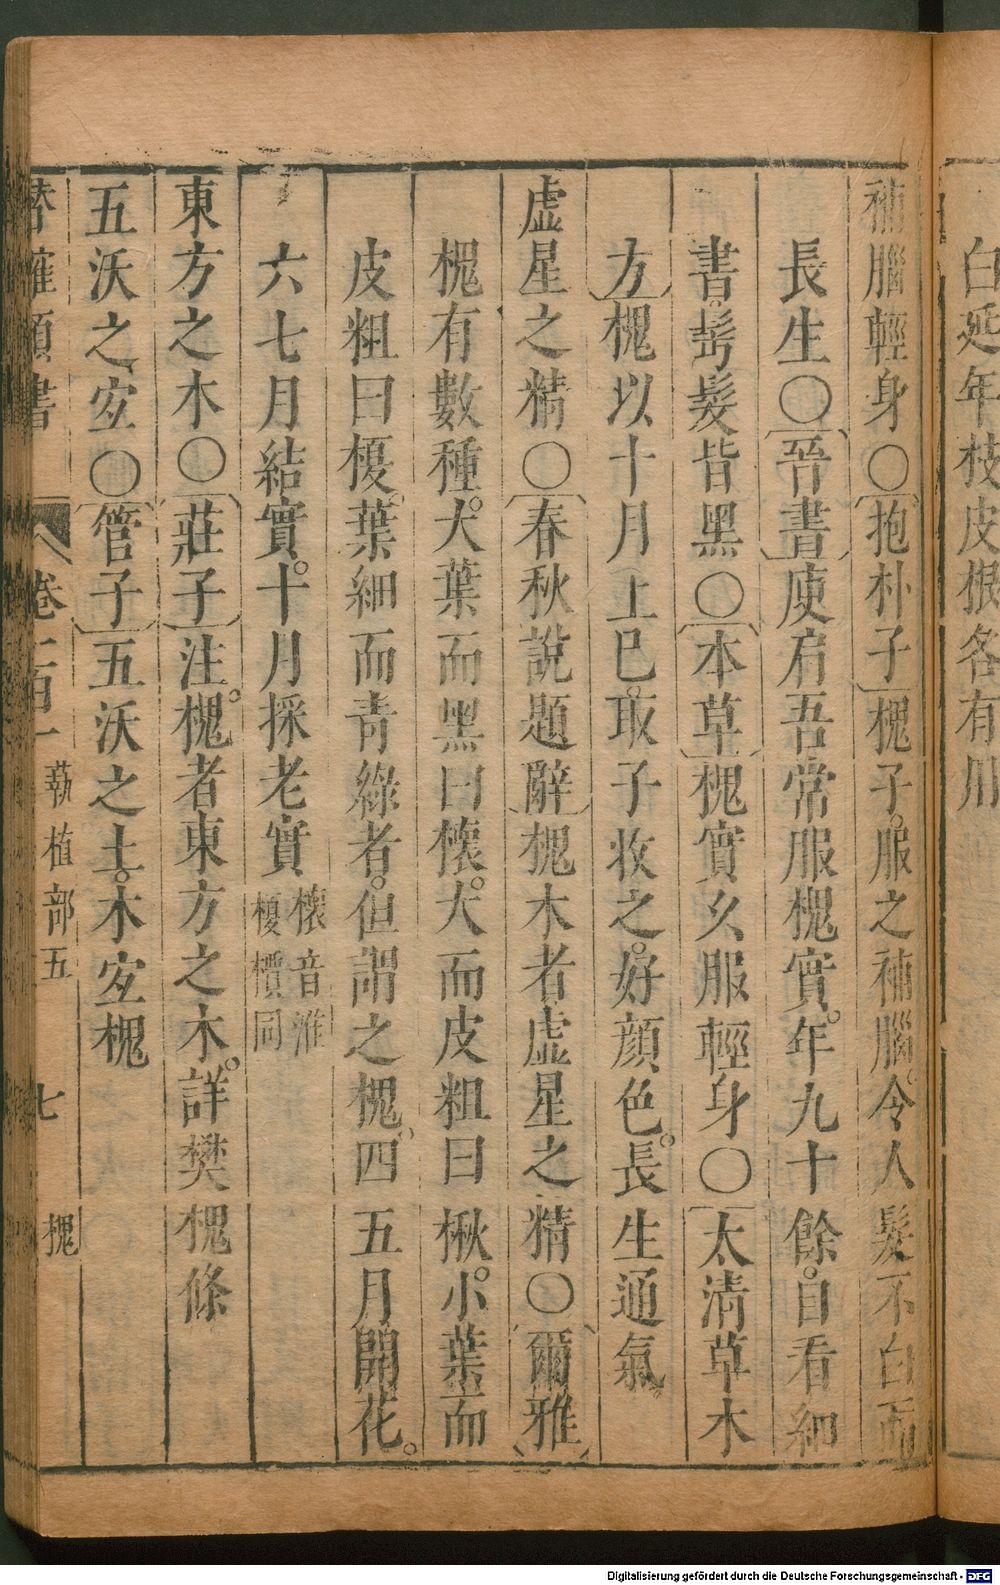 白延年枝皮根各有川
補腦輕身〇抱朴子槐子服之補腦令人髮不白而
長生〇晉書庾肩吾常服槐實年九十餘自看細
書髩髮皆黑〇本草槐實久服輕身〇太清草木
方槐以十月上巳取子收之好顏色長生通氣
虛星之精〇春秋說題辭槐木者虛星之精〇爾雅
槐有數種大葉而黑曰櫰大而皮粗曰楸小葉而
皮粗曰榎葉細而青綠者但謂之槐四五月開花
六七月結實十月採老實櫰音淮榎檟同
東方之木〇莊子注槐者東方之木詳樊槐條
五沃之宐〇管子五沃之土木宐槐
潛確類書 卷一百一 蓺植部五 七 槐
Digitalisierung gefördert durch die Deutsche Forschungsgemeinschaft - DFG